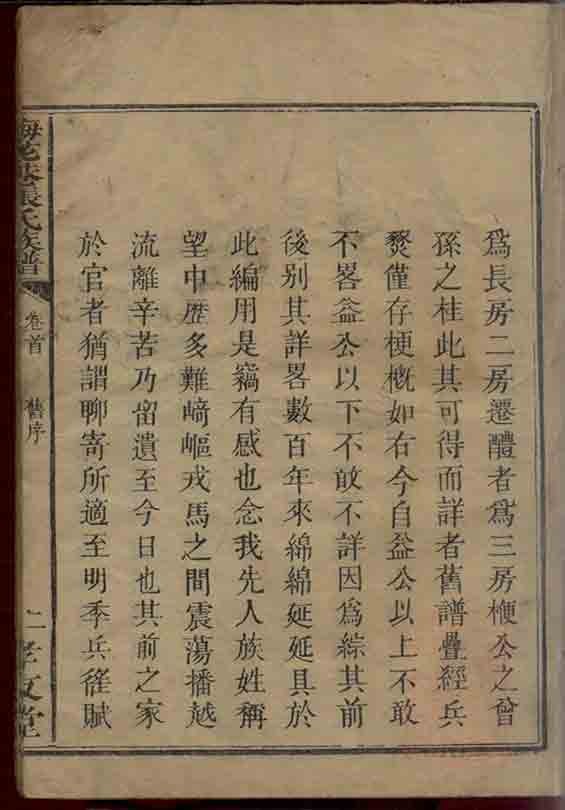 爲長房二房遷醴者爲三房楩公之曾
孫之桂此其可得而詳者舊譜疊經兵
燹僅存梗概如右今自益公以上不敢
不畧益公以下不敢不詳因爲綜其前
後别其詳畧數百年來綿綿延延具於
此編用是竊有感也念我先人族姓稱
望中歷多難﨑嶇戎馬之間震蕩播越
流離辛苦乃畱遺至今日也其前之家
於官者猶謂聊寄所適至明季兵徭賦
張氏族譜
卷首
舊序
二
孝友堂